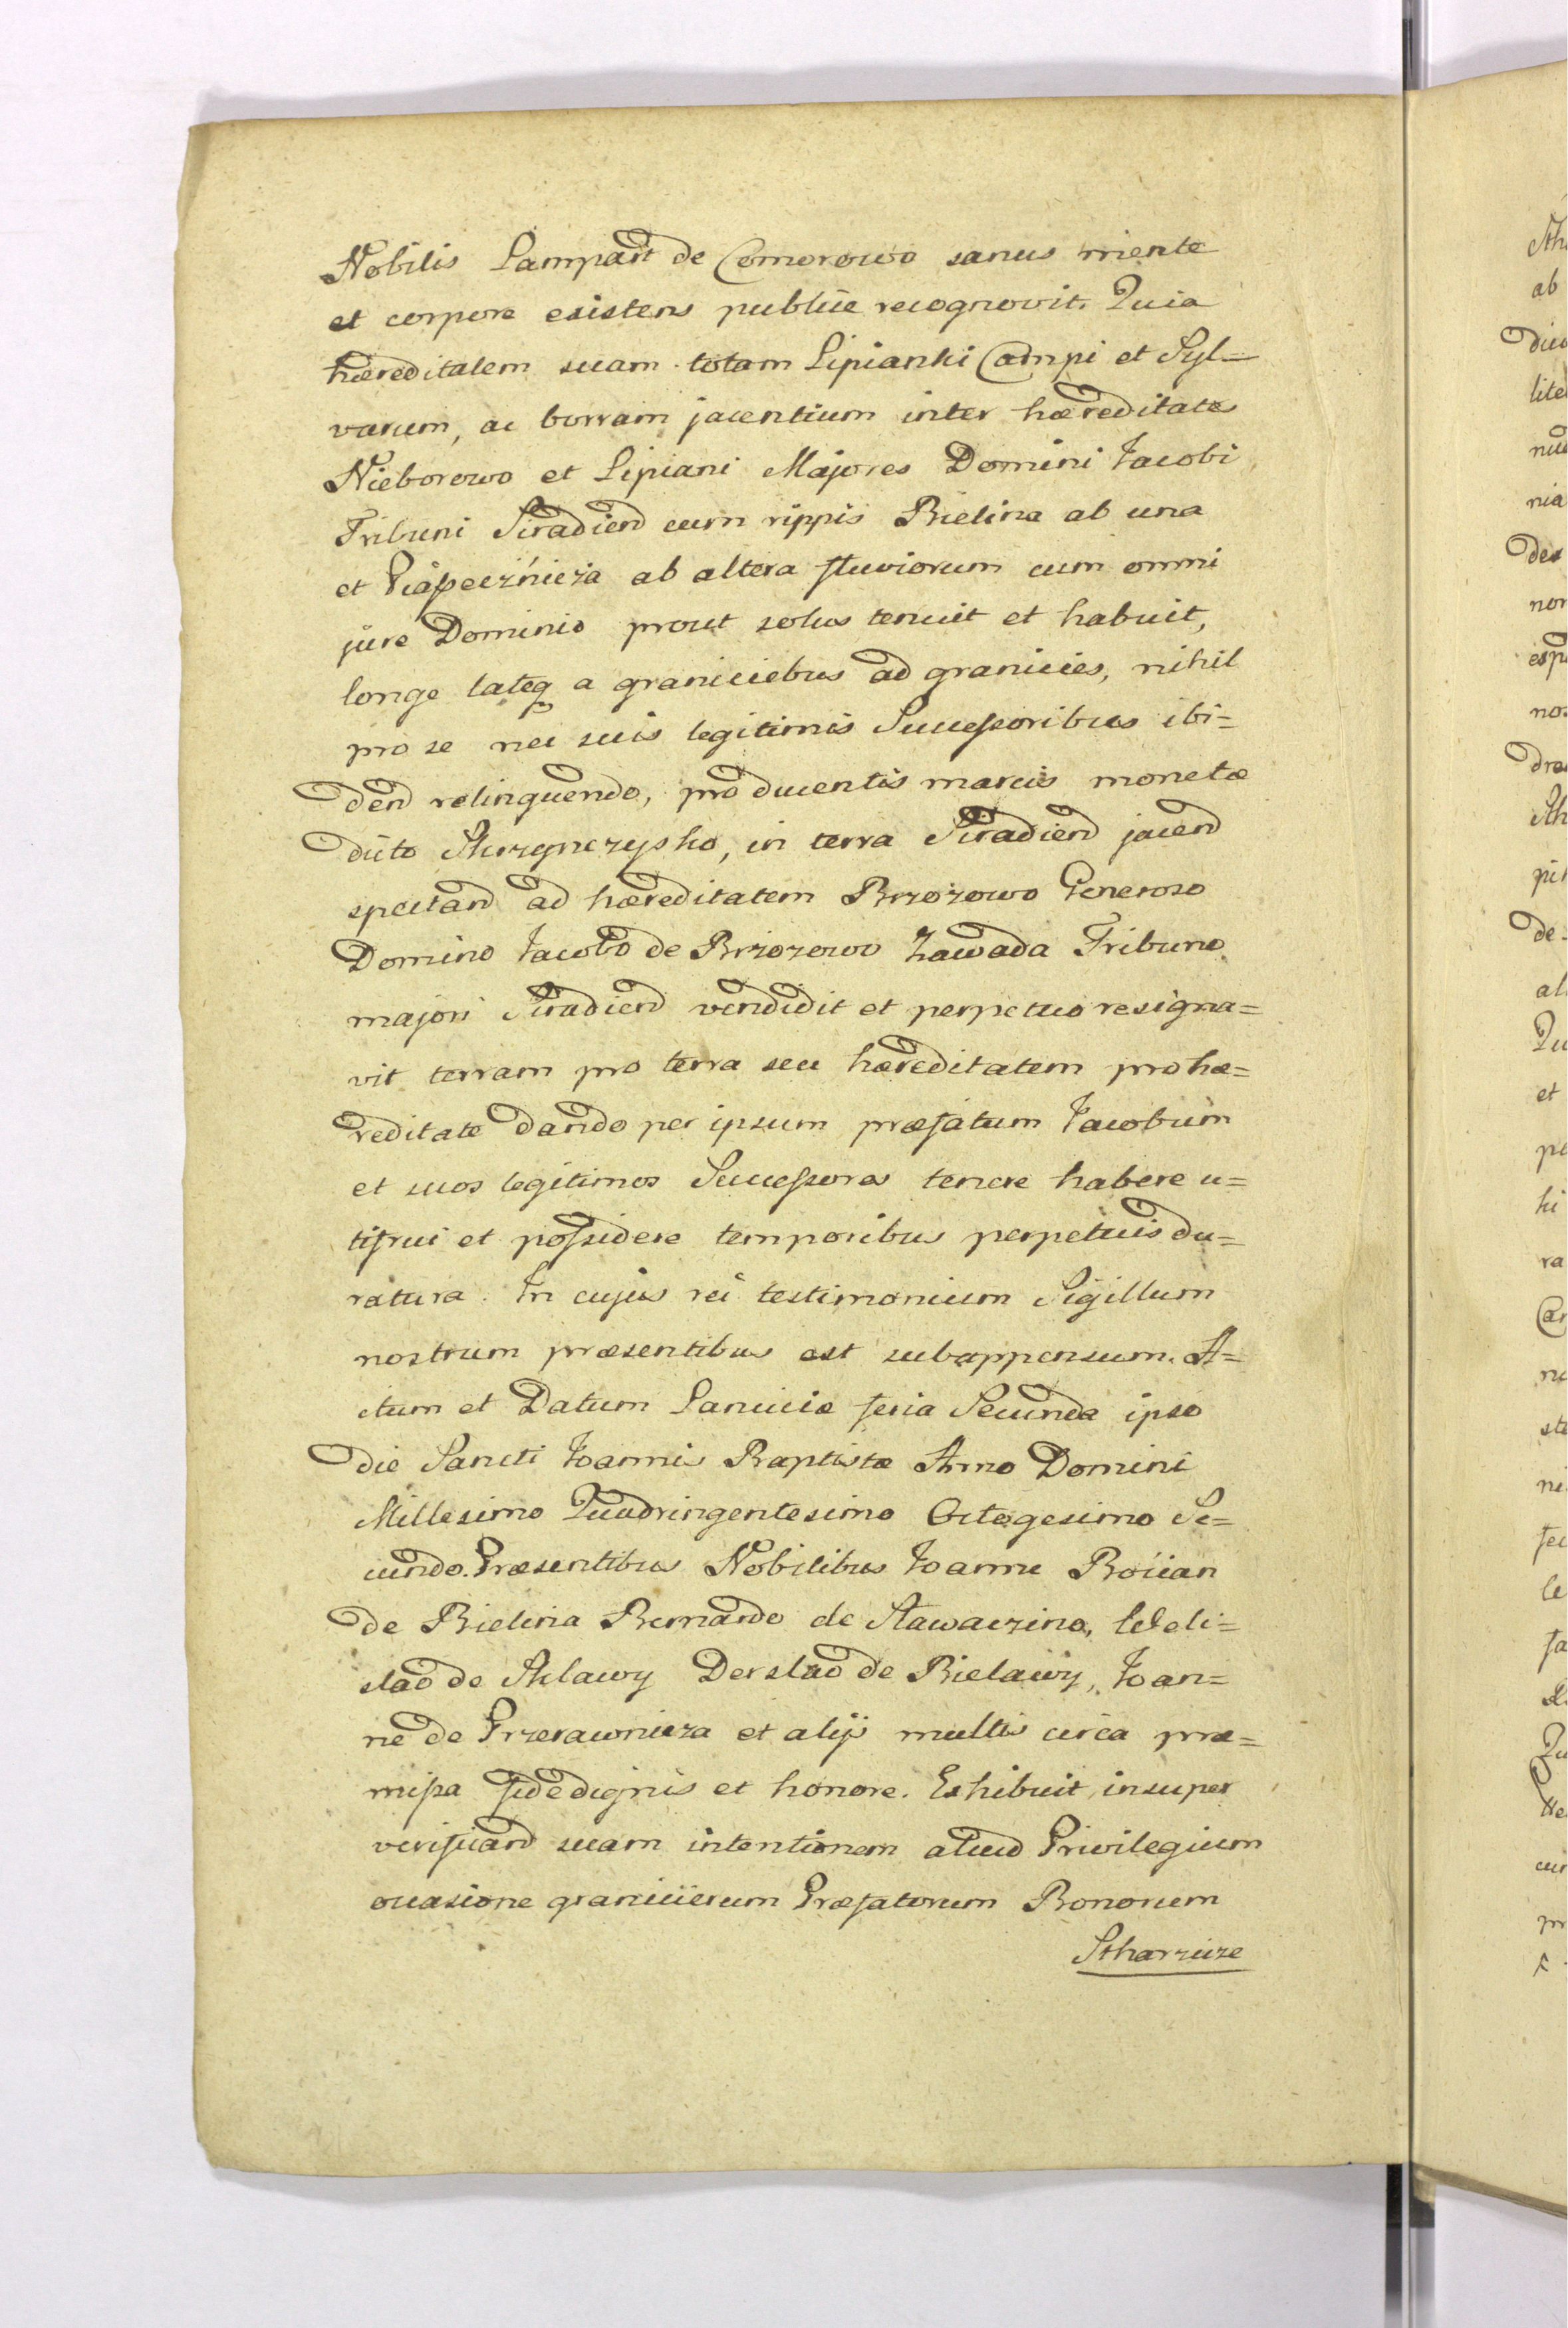 Nobilis Lampart de Comorowo sanus mente
et corpore existens publice recognovit. Quia
hæreditatem suam totam Lipianki Campi et Syl=
varum, ac borram jacentium inter hæreditates
Nieborowo et Lipiani Majores Domini Jacobi
Tribuni Siradien cum rippis Bielina ab una
et Piaseczńicza ab altera fluviorum cum omni
jure Dominio prout solus tenuit et habuit,
longe lateq a graniciebus ad granicies, nihil
pro se nec suis legitimis Successoribus ibi=
dem relinquendo, pro ducentis marcis monetæ
dicto Skrzynczysko, in terra Siradien jacend
spectand ad hæreditatem Brzozowo Generoso
Domino Jacobo de Brzozowo Zawada Tribuno
majori Siradien vendidit et perpetuo resigna=
vit terram pro terra seu hæreditatem pro hæ=
reditate dando per ipsum præfatum Jacobum
et suos legitimos Successores tenere habere u=
tifrui et possidere temporibus perpetuis du=
ratura. In cujus rei testimonium Sigillum
nostrum præsentibus est subappensum. A=
ctum et Datum Lanciciæ feria Secunda ipso
die Sancti Joannis Baptistæ Anno Domini
Millesimo Quadringentesimo Octogesimo Se=
cundo. Præsentibus Nobilibus Joanne Boiian
de Bielina Bernardo de Stawaczino, Weli=
slao de Sklawy Derslao de Bielawy, Joan=
ne de Przerawnicza et alijs multis circa præ=
missa fide dignis et honore. Exhibuit insuper
verificand suam intentionem aliud Privilegium
occasione graniciierum Præfatorum Bonorum
Stharzicze